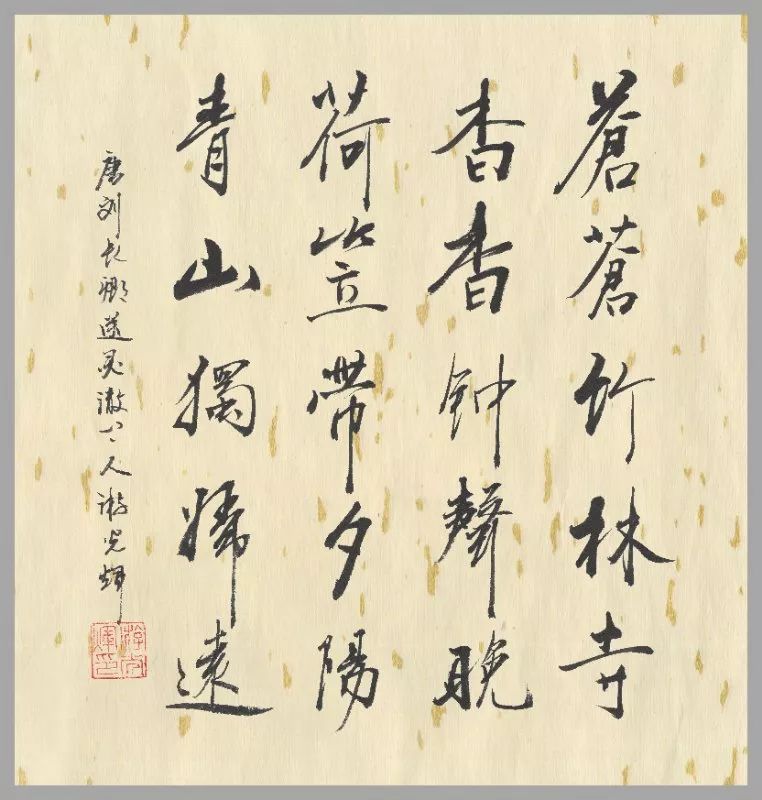 蒼蒼竹林寺
杳杳钟聲晚
荷笠帶夕陽
青山獨歸遠
唐刘长卿送灵澈上人 游光辉